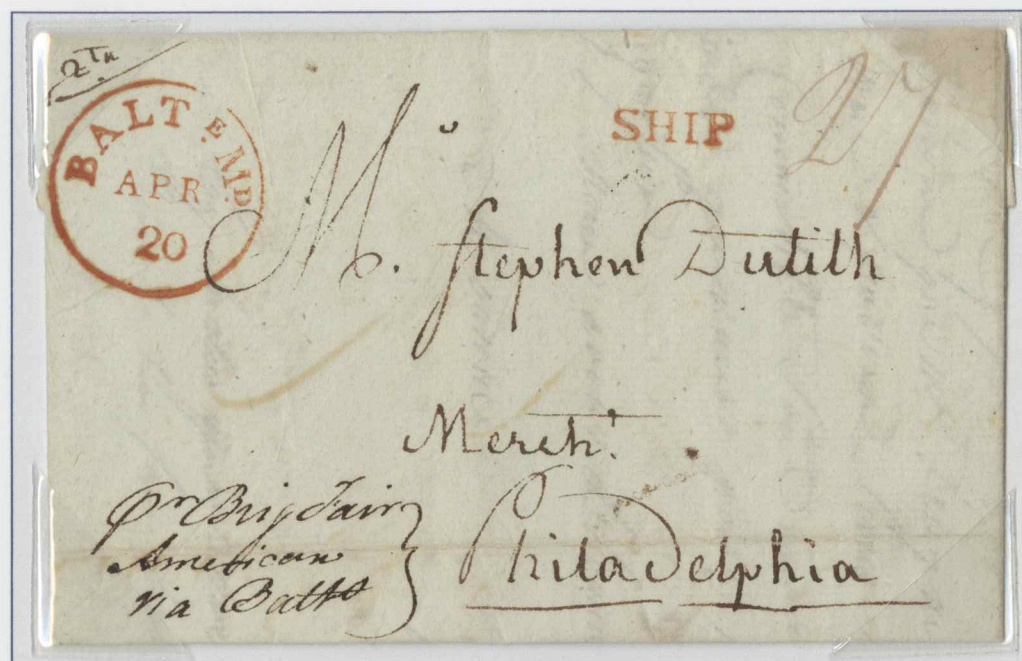 BALTE MD.
APR
20
SHIP
27
M. Stephen Dutilh
Mercht.
Philadelphia
pr Brig Fair
American
via Balto